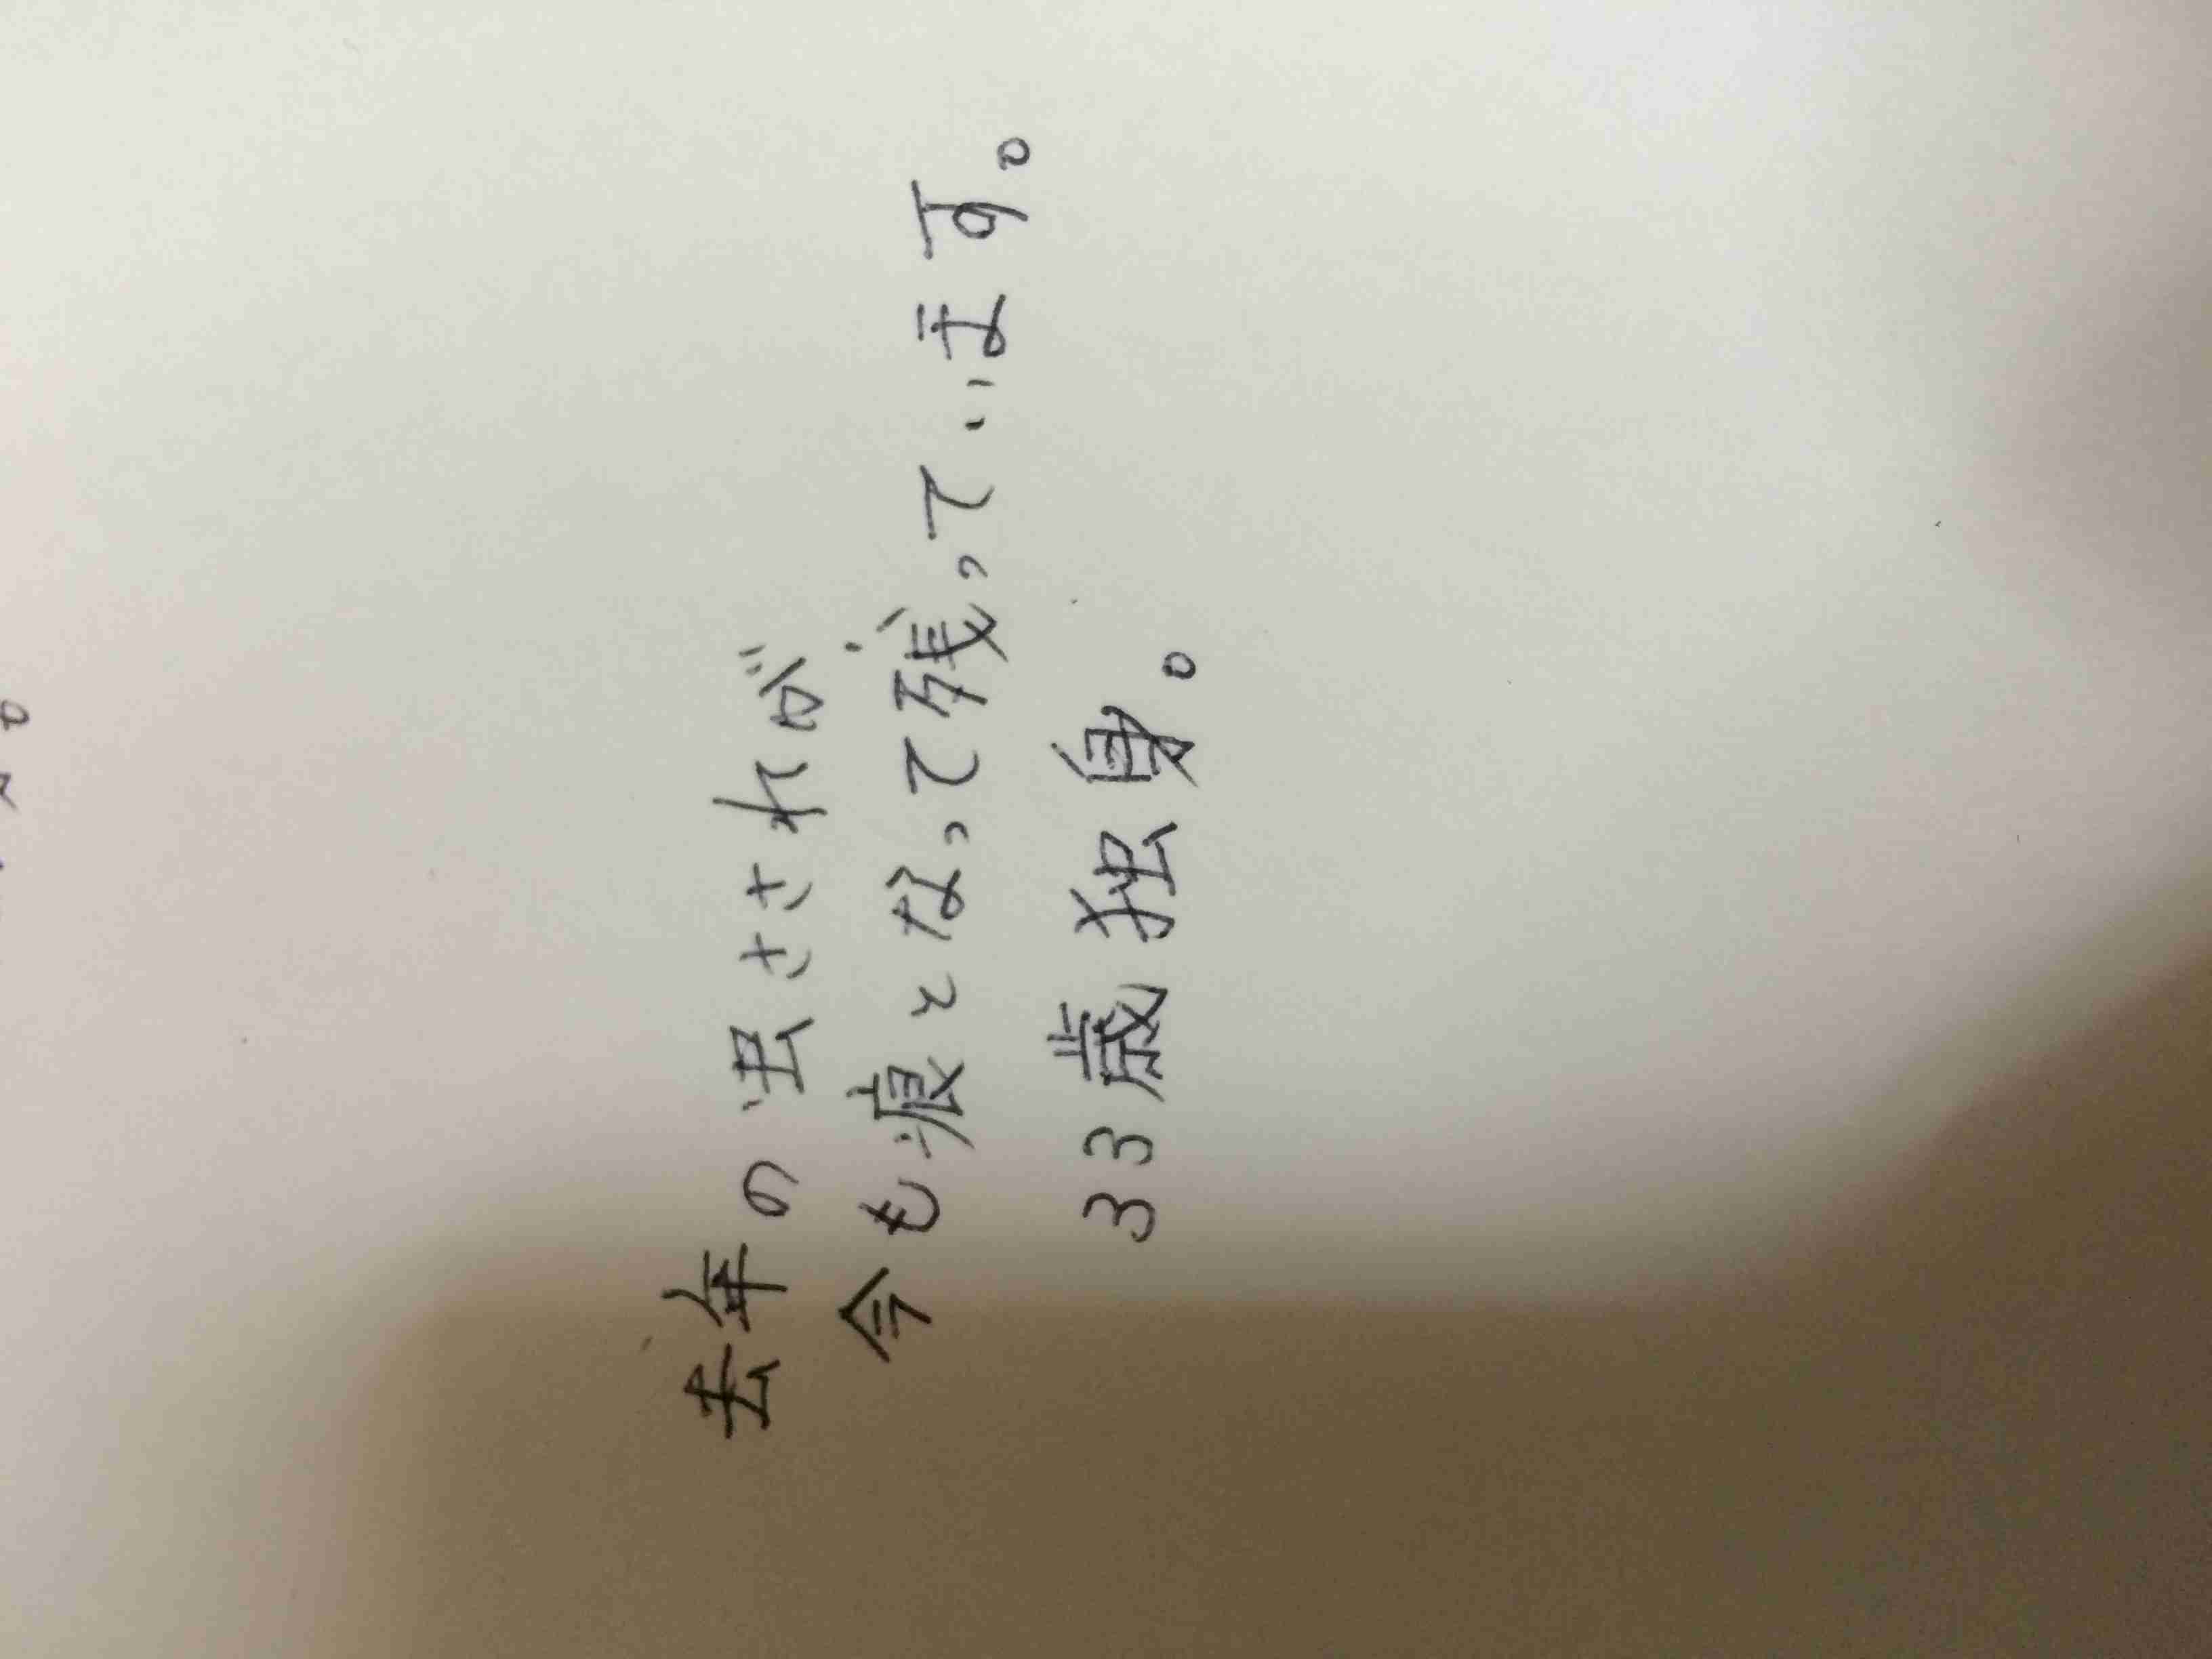 去年の虫さされが
今も痕となって残っています。
33歳独身。